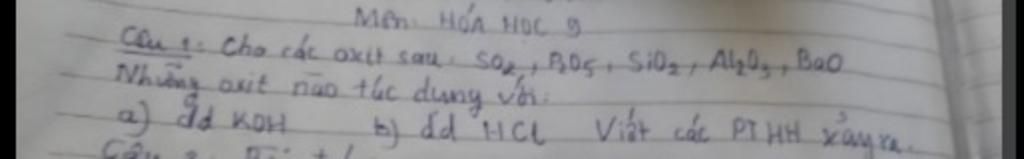 Môn: HÓA HỌC 9
Câu 1: Cho các oxit sau: SO2, P2O5, SiO2, Al2O3, BaO
Những oxit nào tác dụng với:
a) dd KOH b) dd HCl Viết các PTHH xảy ra.
Câu